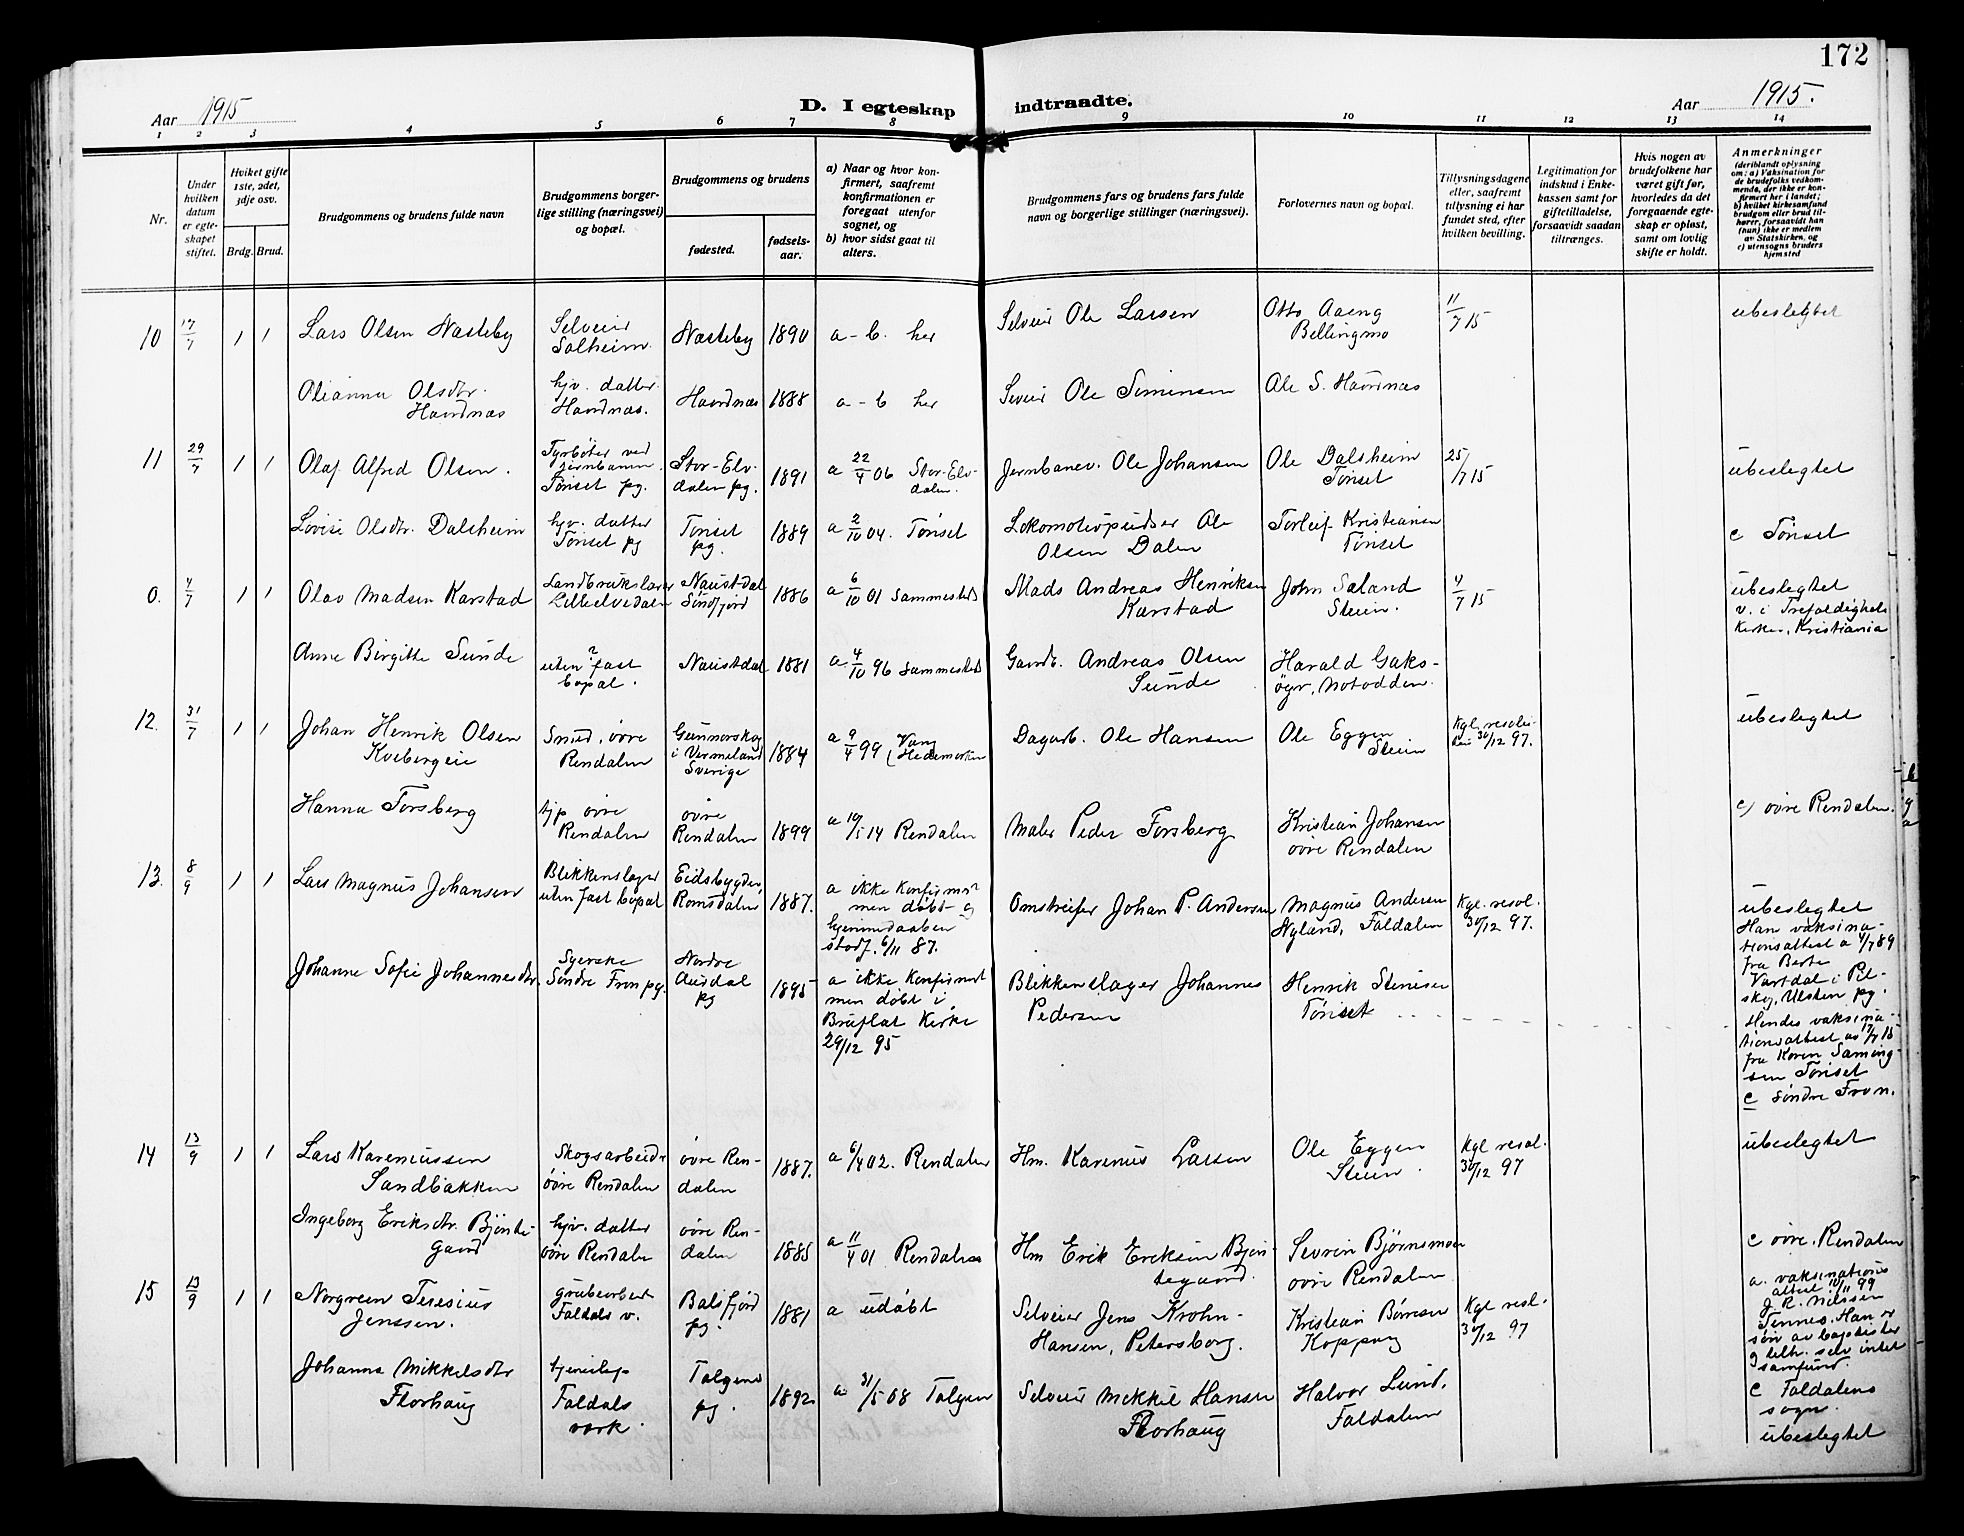 172
Aar 1915
D. I egteskap indtraadte.
Aar 1915.
1 2 3 4 5 6 7 8 9 10 11 12 13 14
Nr.
Under hvilken datum er egteskapet stiftet.
Hvilket gifte 1ste, 2det, 3dje osv.
Brdg. Brud.
Brudgommens og brudens fulde navn
Brudgommens borgerlige stilling (næringsvei) og bopæl.
Brudgommens og brudens
fødested.
fødselsaar.
a) Naar og hvor konfirmert, saafremt konfirmationen er foregaat utenfor sognet, og
b) hvor sidst gaat til alters.
Brudgommens fars og brudens fars fulde navn og borgerlige stillinger (næringsvei).
Forlovernes navn og bopæl.
Tillysningsdagene eller, saafremt tillysning ei har fundet sted, efter hvilken bevilling.
Legitimation for indskud i Enkekassen samt for giftetilladelse, forsaavidt saadan tiltrænges.
Hvis nogen av brudefolkene har været gift før, hvorledes da det foregaaende egteskap er opløst, samt om lovlig skifte er holdt.
Anmerkninger
(deriblandt oplysning om: a) Vaksination for de brudefolks vedkommende, der ikke er konfirmert her i landet; b) hvilket kirkesamfund brudgom eller brud tilhører, forsaavidt han (hun) ikke er medlem av Statskirken, og c) utensogns bruders hjemsted
10 17/7 1 1 Lars Olsen Næsteby Selveier Solheim. Næsteby 1890 a-b. her Selveier Ole Larsen Otto Aaeng Bellingmo 11/7 15 ubeslegtet
Olianna Olsdtr. Havdnæs hjv. datter Havdnæs. Havdnæs 1888 a-b her Seveier Ole Simensen Ole S. Havdnæs
11 29/7 1 1 Olaf Alfred Olsen. Fyrbøter ved jernbanen. Tønset pg. Stor-Elvdalen pg. 1891 a 22/4 06 Stor-Elvdalen. Jernbanev. Ole Johansen Ole Dalsheim Tønset 25/7 15 ubeslegtet
Lovise Olsdtr. Dalsheim hjv. datter Tønset pg Tønset pg. 1889 a 2/10 04. Tønset Lokomotivpudser Ole Olsen Dalen Torleif Kristiansen Tønset c Tønset
0. 4/7 1 1 Olav Madsen Karstad Landbrukslærer Lilleelvedalen Naustdal Søndfjord 1886 a 6/10 01 sammesteds Mads Andreas Henriksen Karstad John Saland Steien. 4/7 15 ubeslegtet v. i Trefoldigheds Kirken, Kristiania
Anne Birgitte Sunde uten fast bopæl. Naustdal 1881 a 4/10 96 sammesteds Gaardb. Andreas Olsen Sunde Harald Gaksøyr, Notodden.
12. 31/7 1 1 Johan Henrik Olsen Kvebergeie Smed, øvre Rendalen Gunnarskog i Vermeland Sverige 1884 a 9/4 99 Vang Hedemarken Dagarb. Ole Hansen Ole Eggen Steien Kgl. resolution 30/12 97. ubeslegtet
Hanna Forsberg tjp øvre Rendalen øvre Rendalen 1899 a 19/5 14 Rendalen Maler Peder Forsberg Kristian Johansen øvre Rendalen c) øvre Rendalen.
13. 8/9 1 1 Lars Magnus Johansen Blikkenslager uten fast bopæl Eidsbygden, Romsdalen 1887. a ikke konfirmert men døbt og hjemmedaaben stadf. 6/11 87. Omstreifer Johan P. Andersen Magnus Andersen Nyland, Foldalen Kgl. resol. 30/12 97. ubeslegtet Han vaksinationsattest a 4/7 89 fra Berte Vartdal i Pilskog, Ulsten pg. Hendes vaksinationsattest av 17/7 15 fra Karen Samingsen Tønset c søndre Fron.
Johanne Sofie Johannesdtr. Syerske Søndre Fron pg. Nordre Aurdal pg 1895 a ikke konfirmert men døbt i Bruflat Kirke 29/12 95 Blikkenslager Johannes Pedersen Henrik Stenersen Tønset
14 13/9 1 1 Lars Karenussen Sandbakken Skogsarbeider øvre Rendalen øvre Rendalen 1887. a 6/4 02. Rendalen Hm. Karenus Larsen Ole Eggen Steien. Kgl resol. 30/12 97 ubeslegtet
Ingeborg Eriksdtr. Bjøntegaard hjv. datter øvre Rendalen øvre Rendalen 1885 a 11/4 01 Rendalen Hm Erik Eriksen Bjøntegaard. Sevrin Bjørnsmoen øvre Rendalen c øvre. Rendalen
15 13/9 1 1 Norgreen Teresius Jenssen. grubearbeid Foldals v. Balsfjord pg. 1881 a udøbt Selveier Jens Krohn-Hansen, Petersborg. Kristian Børresen Koppang Kgl resol. 30/12 97 a. vaksinations attest 10/11 99 J. R. Nilssen Tennes. Han er søn av baptister og tilh. selv intet samfund.
Johanna Mikkelsdtr Florhaug tjenestep Foldals verk. Tolgen pg. 1892 a 31/5 08 Tolgen Selveier Mikkel Hansen Florhaug Halvor Lund, Foldalen c Foldalens sogn. ubeslegtet